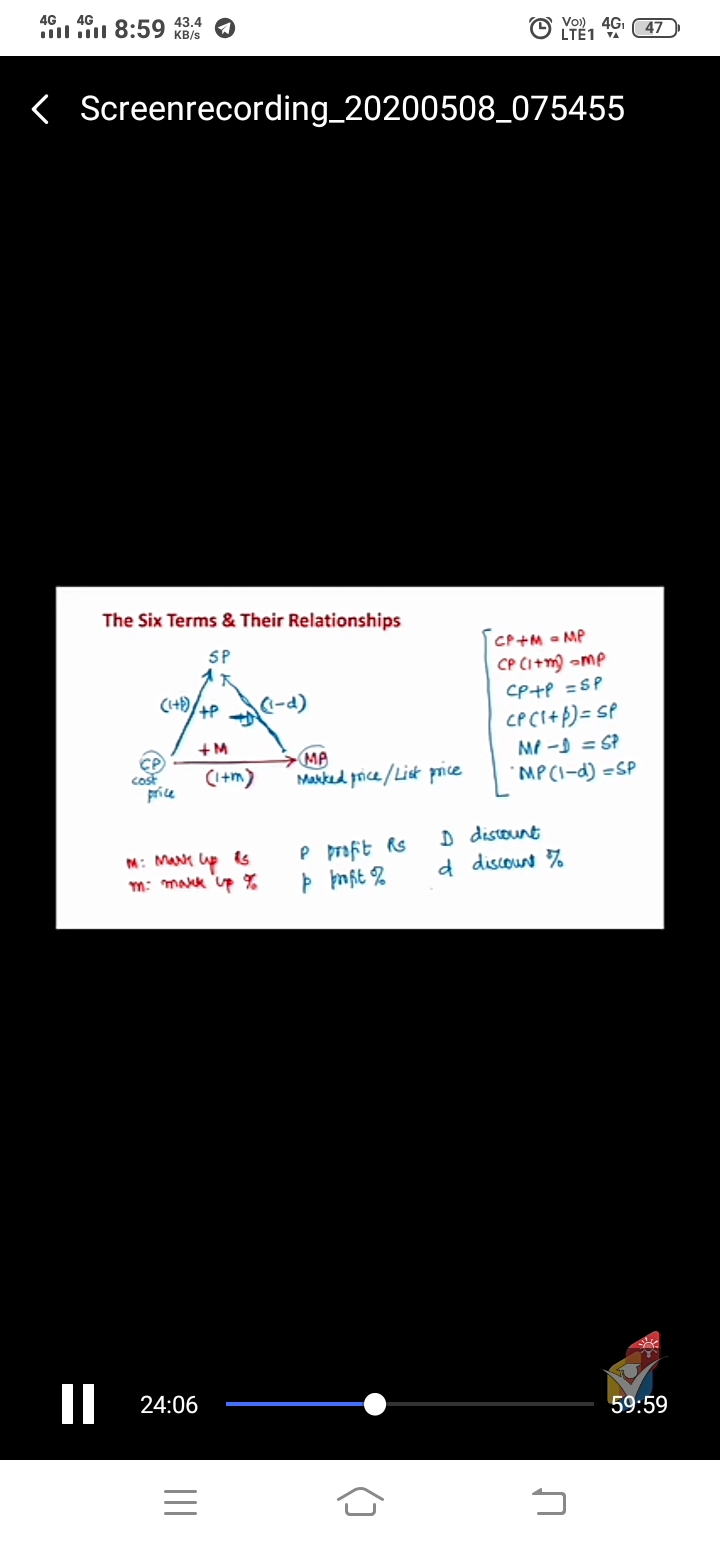 4G 4G 8:59 43.4 KB/s Vo)) LTE1 4G 47
Screenrecording_20200508_075455
The Six Terms & Their Relationships
SP
(1+p) +P D (1-d)
+M
CP MP
cost price (1+m) Marked price/List price
CP+M = MP
CP(1+m) = MP
CP+P = SP
CP(1+p) = SP
MP-D = SP
MP(1-d) = SP
M: Mark up Rs P profit Rs D discount
m: mark up % p profit % d discount %
24:06 59:59